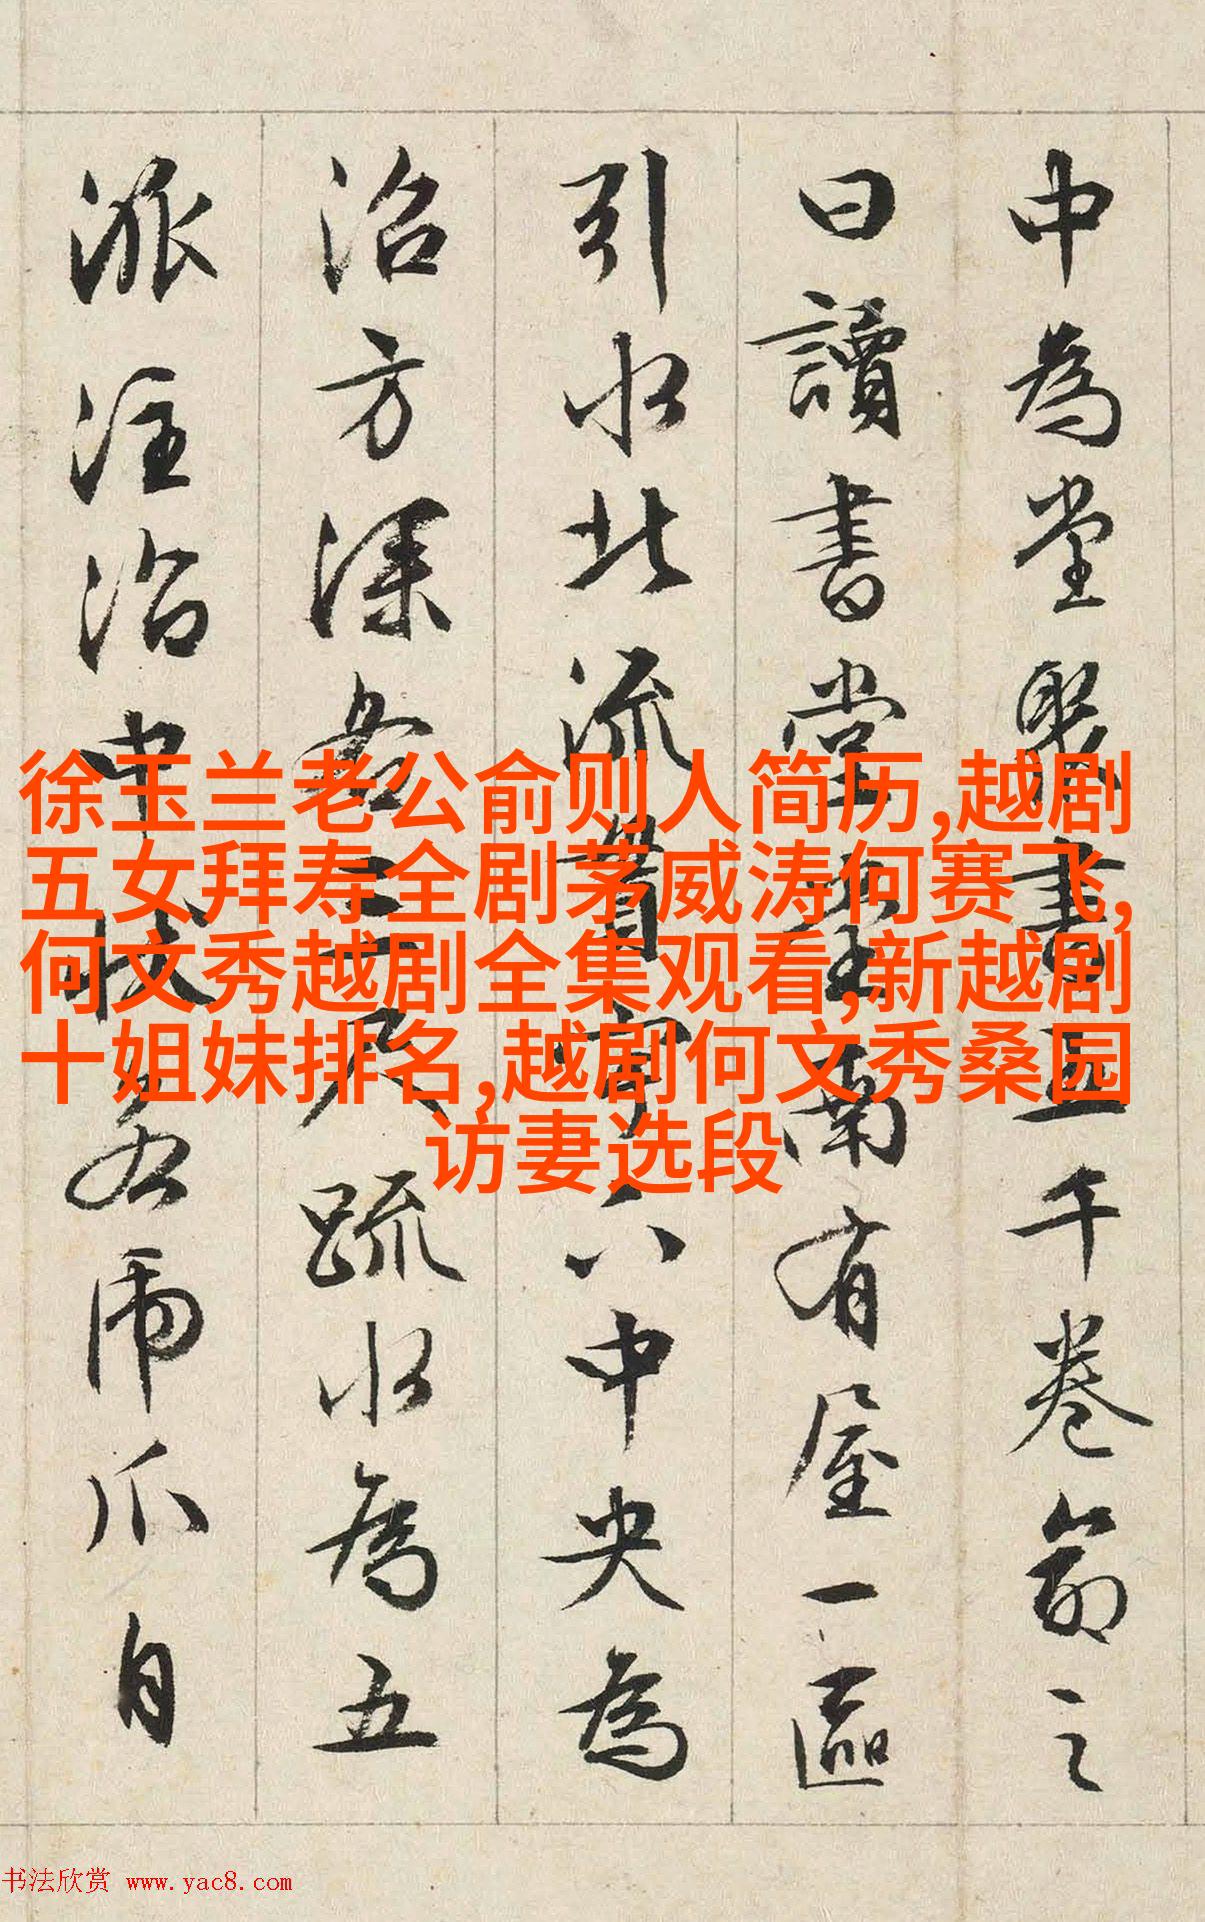 中為堂聚書五千卷命之
曰讀書堂堂南有屋一區
引水北流貫宇下中央為
沼方深各三尺疏水為五
派注沼中狀若虎爪自
徐玉兰老公俞则人简历,越剧
五女拜寿全剧茅威涛何赛飞,
何文秀越剧全集观看,新越剧
十姐妹排名,越剧何文秀桑园
访妻选段
书法欣赏 www.yac8.com